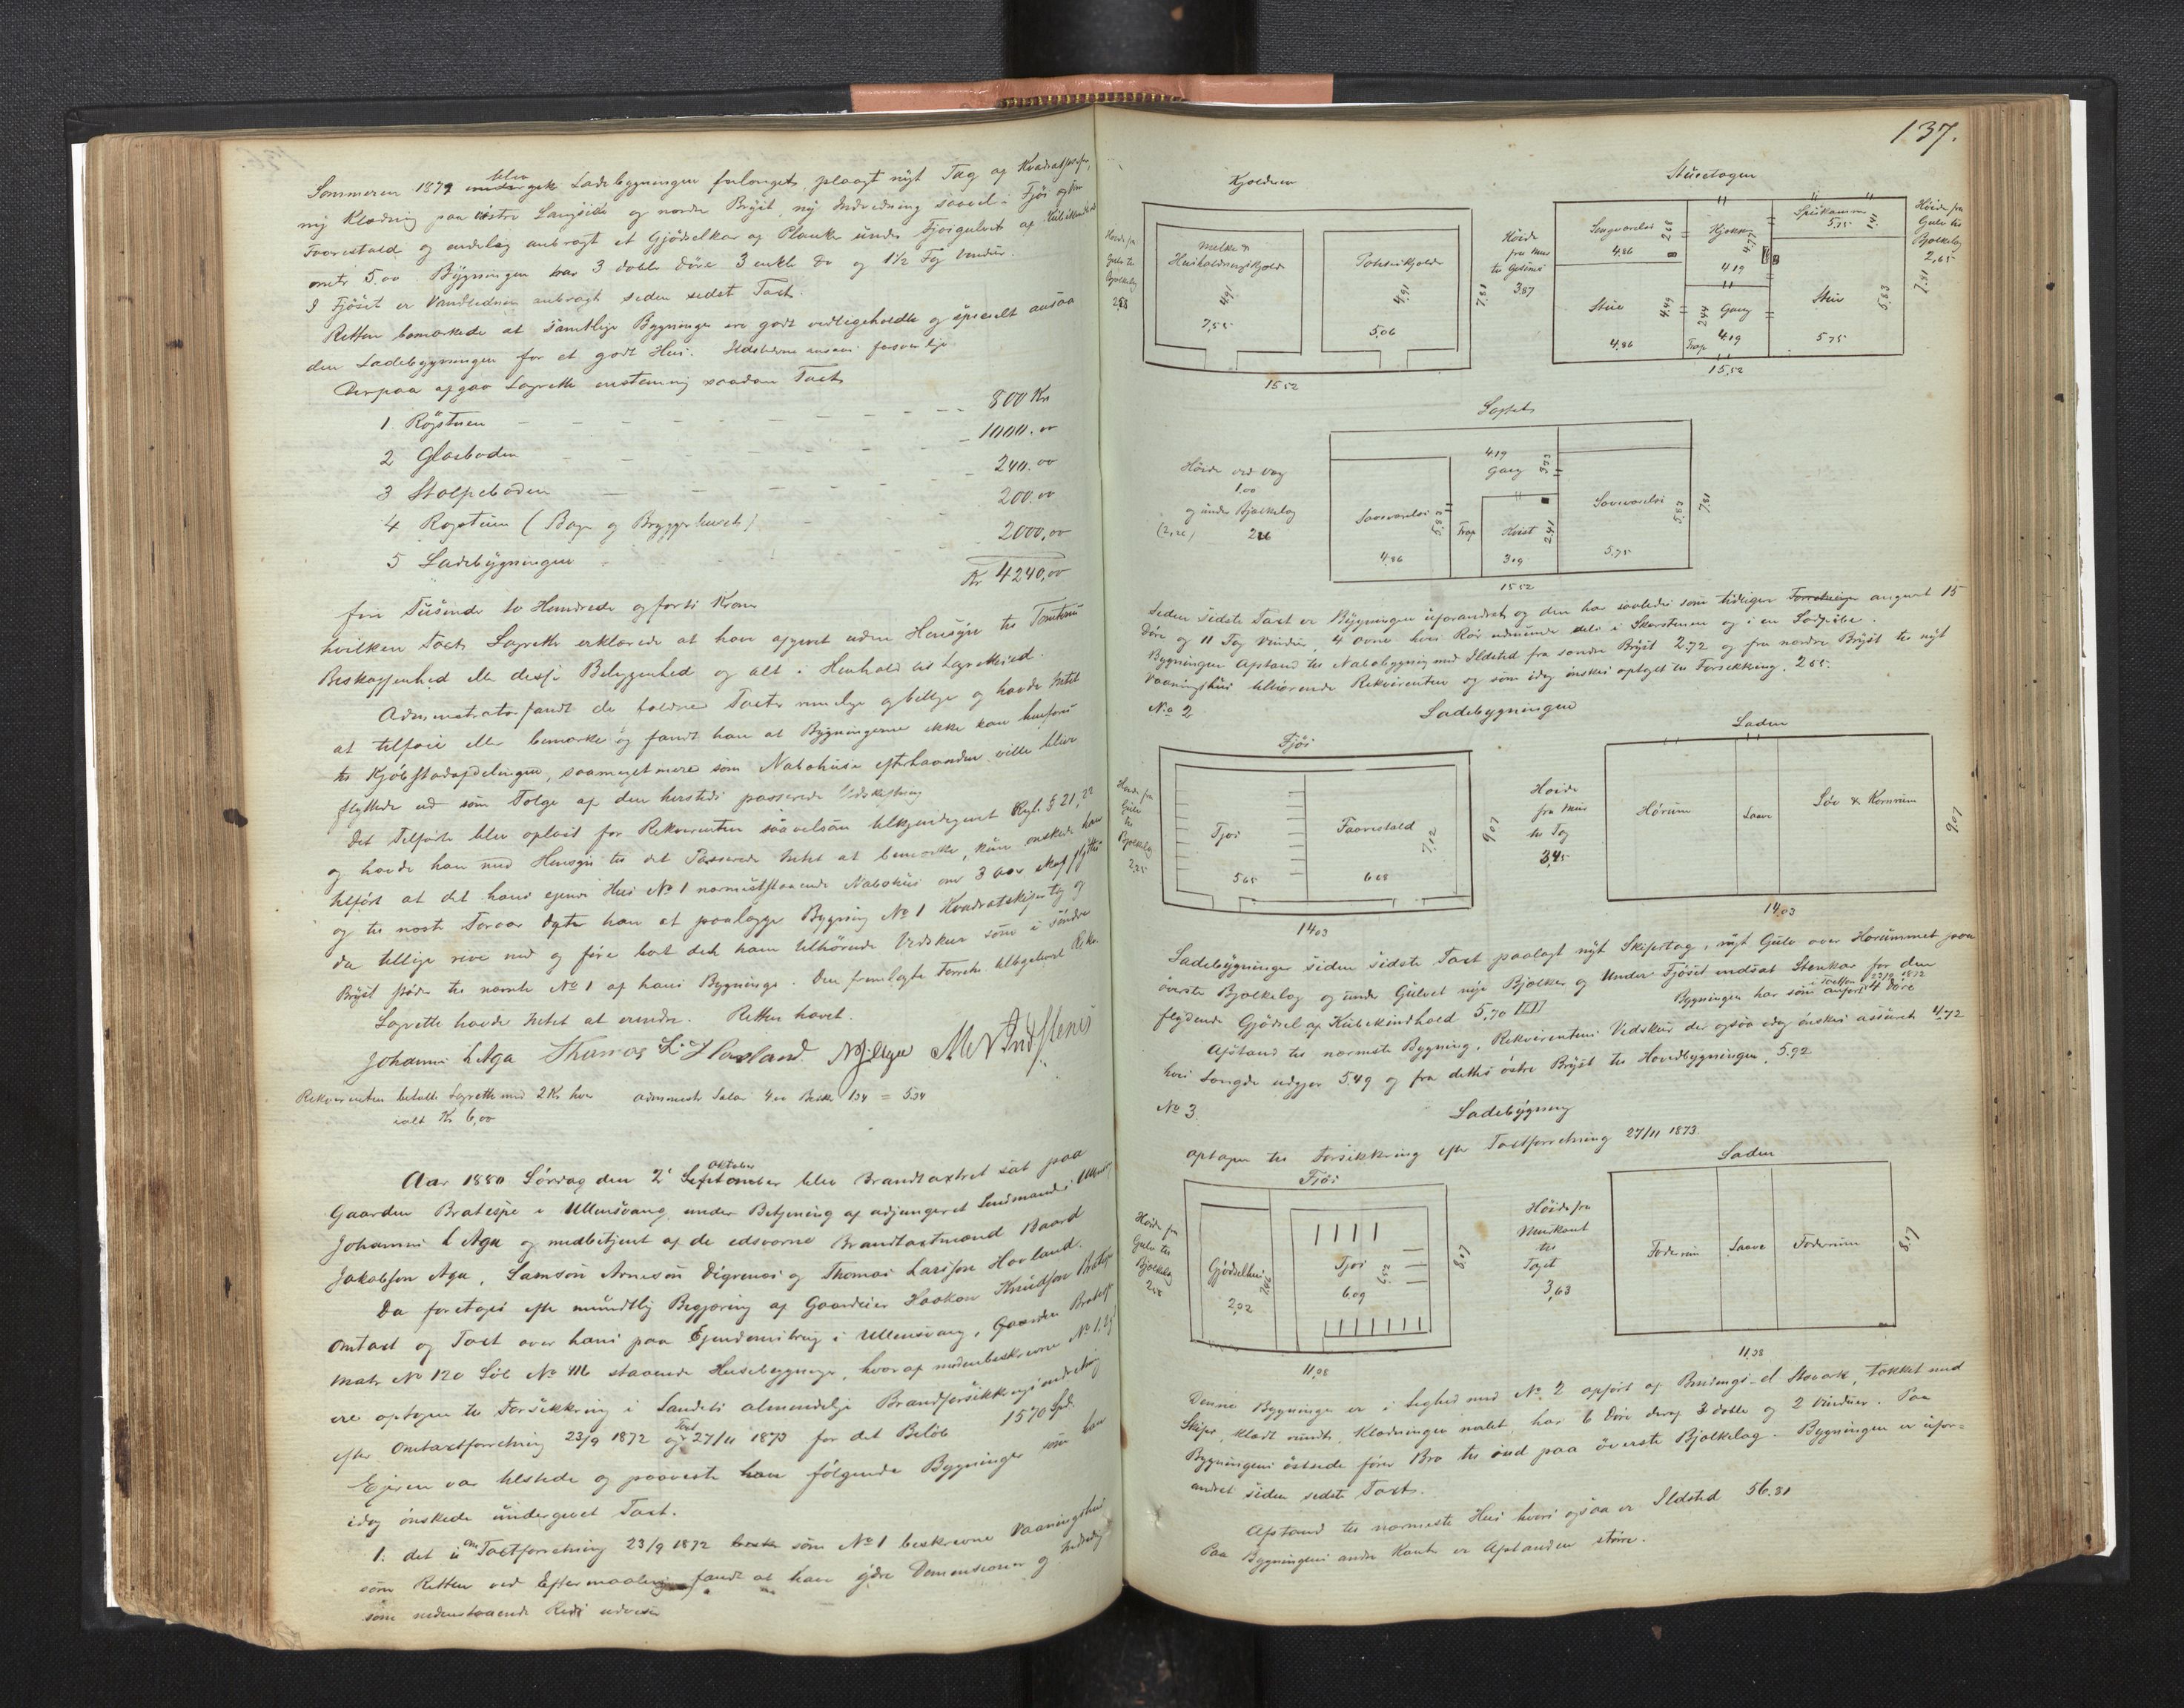 Sommeren 1879 blev Ladebygningen forlænget, plaagt nyt Tag af
ny Klædning paa østre Langside og nordre Bryst, ny Indredning saavel i Fjøs og
Faarestald og endelig anbragt et Gjødselkar af Planke under Fjøsgulvet af
metr 5.00 Bygningen har 3 doble Døre 3 enkle Do og 1½ Fag Vindu.
I Fjøset er Vandledning anbragt siden sidst Taxt.
Retten bemærkede at samtlige Bygninger ere godt vedligeholdte og specielt ansaa
den Ladebygningen for et godt Hus. Ildstederne ansaaes forsvarlige
Derpaa afgav Lagrettet enstemmig saadan Taxt
1. Røgstuen 800 Kr
2 Glasboden 1000.00
3 Stolpeboden 240.00
4 Rogstuen (Bage og Bryggerhuset) 200.00
5 Ladebygningen 2000,00
Kr 4240,00
fire Tusinde to Hundrede og forti Kroner
hvilken Taxt Lagrettet erklærede at have afgivet uden Hensyn til Tomtens
Beskaffenhed eller dessen Beliggenhed og alt i Henhold til Lagrettesed.
Administrator fandt de holdne Taxter rimelige og billige og havde Intet
at tilføie eller bemærke og fandt han at Bygningerne ikke kan henføres
til Kjøbstadafdelingen, saameget mere som Nabohuse efterhaanden ville blive
flyttede ud som Følge af den hersteds passerede Udskiftning
Det Tilførte blev oplæst for Rekvirenten saavelsom tilkjendegivet Regl. § 21, 22
og havde han med Hensyn til det Passerede Intet at bemærke, kun ønskede han
tilført at det hans eget Hus No 1 nærmeststaaende Nabohus om 3 Aar skal flyttes
og til næste Foraar agter han at paalægge Bygning No 1 Kvadratskifertag og
da tillige rive ned og føre bort det ham tilhørende Vedskur som i søndre
Bryst støder til nævnte No 1 af hans Bygninger. Den fremlagte Forretn tilbageleveret Rekv.
Lagrettet havde Intet at erindre. Retten hævet.
Johannes L Aga Thomas L. Hovland. N J Aga
Rekvirenten betalte Lagrettet med 2 Kr hver administr Salær 4.00 1.34 = 5.34
ialt Kr 6,00
Aar 1880 Lørdag den 2' September Oktober blev Brandtaxtret sat paa
Gaarden Bratespe i Ullensvang under Betjening af adjungeret Lensmand i
Johannes L Aga og medbetjent af de edsvorne Brandtaxtmænd Baard
Jakobsen Aga, Samson Arneson Digrenes og Thomas Larssen Hovland.
Da foretoges efter mundtlig Begjæring af Gaardeier Haakon Knudsen
Omtaxt og Taxt over hans paa Ejendomsbrug i Ullensvang, Gaarden
Matr No 120 Løb No 416 staaende Husebygninger, hvoraf nedenbeskrevne No 1, 2 og
ere optagen til Forsikkring i Landets almindelige Brandforsikkringsindretning
efter Omtaxtforretning 23/9 1872 og Taxt 27/11 1873 for det Beløb 1570 Spd.
Ejeren var tilstede og paaviste han følgende Bygninger som han
idag ønskede undergivet Taxt.
1. det i om Taxtforretning 23/9 1872 som No 1 beskrevne Vaaningshus
som Retten ved Eftermaaling fandt at have ydre Demensioner og
som nedenstaaende Rids udviser
137.
Kjælderen
Stueetagen
Høide fra
Gulv til
Bjælkelag
Melke &
Husholdningskjelder
4,91
7,55
Potteskjelder
4,91
5,06
7,81
15.52
Høide
fra Mur
til Gesims
3.87
Sengværelse
2.68
4.86
Kjøkken
4.77
4.19
Spiskammer
5,75
1.41
Stue
4.49
4.86
2.44
Gang
4.19
Trap
Stue
5.83
5.75
Høide fra
Gulv til
Bjælkelag
2,65
7.81
15,52
Loftet
Høide ved Væg
1.00
og under Bjælkelag
4.19
Gang
Soveværelse
5.83
4.86
Trap
Kvist
2.41
3.19
Soveværelse
5.83
5.75
7.81
15.52
Siden sidste Taxt er Bygningen uforandret og den har saaledes som tidligere angivet 15
Døre og 11 Fag Vinduer, 4 Ovne hvis Rør udmunde dels i Skorstenen og i en Lødpibe.
Bygningen Afstand til Nabobygning med Ildsted fra søndre Bryst 2.72 og fra nordre Bryst til nyt
Vaaningshus tilhørende Rekvirenten og som idag ønskes optaget til Forsikkring. 2.55.
No 2
Ladebygningen
Fjøs
Laden
Høide fra
Gulv
til
Bjælkelag
2,25
Fjøs
5.65
Faarestald
7,12
6.68
9.07
14.03
Høide
fra Mur
til Tag
3,45
Hørum
Laave
Løv & Kornrum
9,07
14.03
Ladebygningen siden sidste Taxt paalagt nyt Skifertag, nyt Gulv over Hørummet paa
øverste Bjælkelag og under Gulvet nye Bjælker og Under Fjøset indsat Stenkar for den
flydende Gjødsel af Kubikindhold 5,70 Bygningen har som i Taxten 23/9 1872 anført 4 Døre
Afstand til nærmeste Bygning, Rekvirentens Vedskur der ogsaa idag ønskes assureret 4,72
hvis Længde udgjør 5.49 og fra dettes østre Bryst til Hovedbygningen, 5.92
No 3.
Ladebygning
optagen til Forsikkring efter Taxtforretning 27/11 1873.
Fjøs
Laden
Høide fra
Gulv til
Bjælkelag
Gjødselhus
2,02
Fjøs
6.09
8.17
11,38
Høide fra
Murkant
til
Taget
3,63
Foderrum
Laave
Foderrum
8.17
11,38
Denne Bygning er i Lighed med No 2 opført af Bindings & Stavværk, tækket med
Skifer, klædt rundt, Klædningen malet, har 6 Døre deraf 3 doble og 2 Vinduer. Paa
Bygningens østside fører Bro til ind paa øverste Bjælkelag. Bygningen er ufor=
andret siden sidste Taxt.
Afstand til nærmeste Hus hvori ogsaa er Ildsted 56.81
Paa Bygningens andre Kanter er Afstanden større.